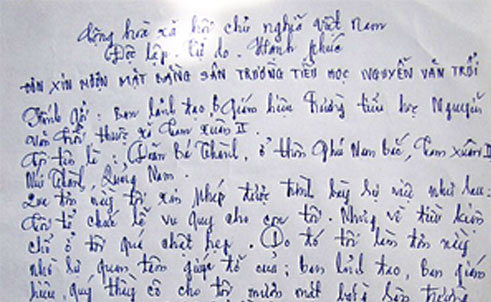 Cộng hòa xã hội chủ nghĩa Việt Nam
Độc lập - Tự do - Hạnh phúc
ĐƠN XIN MƯỢN MẶT BẰNG SÂN TRƯỜNG TIỂU HỌC NGUYỄN VĂN TRỖI
Kính gởi: Ban lãnh đạo & Giám hiệu Trường tiểu học Nguyễn
Văn Trỗi thuộc xã Tam Xuân II.
Tôi tên là: Trần Bá Thành, ở thôn Phú Nam Bắc, Tam Xuân II
Núi Thành, Quảng Nam.
Lời tôi này tôi xin phép được trình bày sự việc như sau:
Tôi tổ chức lễ vu quy cho con tôi. Nhưng về điều kiện
chỗ ở tôi quá chật hẹp. Do đó tôi làm đơn này
nhờ sự quan tâm giúp đỡ của: ban lãnh đạo, Ban giám
hiệu, quý thầy cô cho tôi mượn mặt bằng sân trường